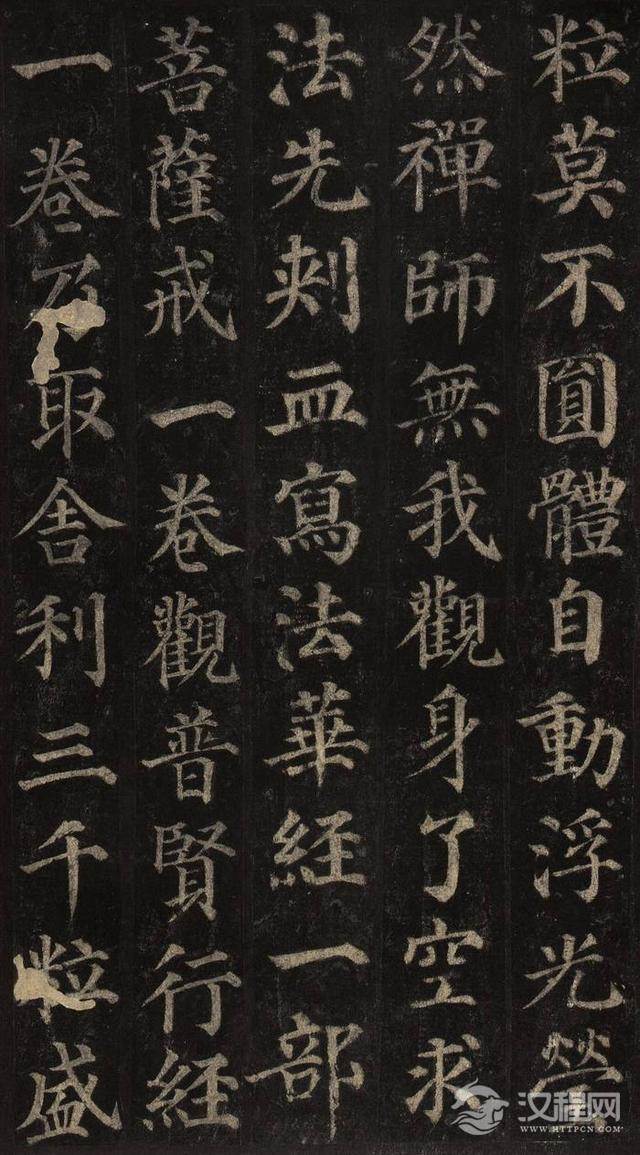 粒莫不圓體自動浮光瑩
然禪師無我觀身了空求
法先刾血寫法華経一部
菩薩戒一卷觀普賢行経
一卷乃取舎利三千粒盛
汉程网
WWW.HTTPCN.COM